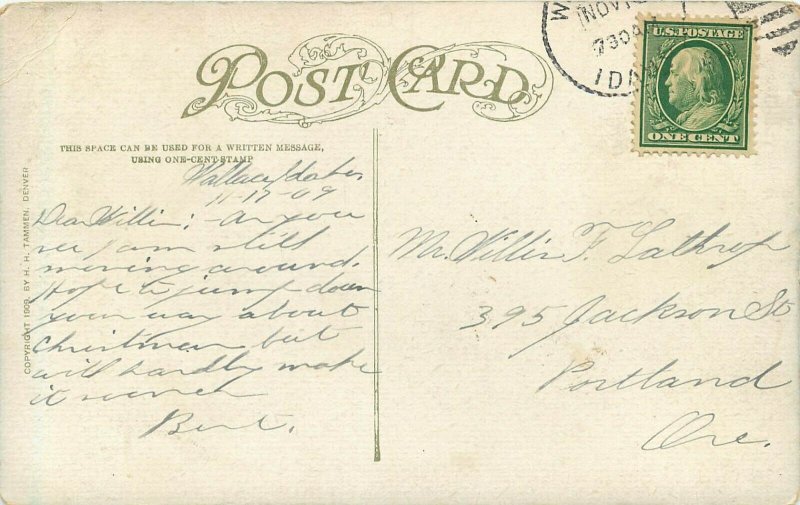 POST CARD
THIS SPACE CAN BE USED FOR A WRITTEN MESSAGE,
USING ONE-CENT-STAMP
Wallace, Idaho
11-17-09
Dear Willis: As you
see I am still
moving around.
Hope to jump down
your way about
Christmas but
will hardly make
it sooner
Bert.
COPYRIGHT 1909, BY H. H. TAMMEN, DENVER
W
NOV 1
730A
IDA
U.S. POSTAGE
ONE CENT
Mr. Willis F. Lathrop
395 Jackson St
Portland
Ore.